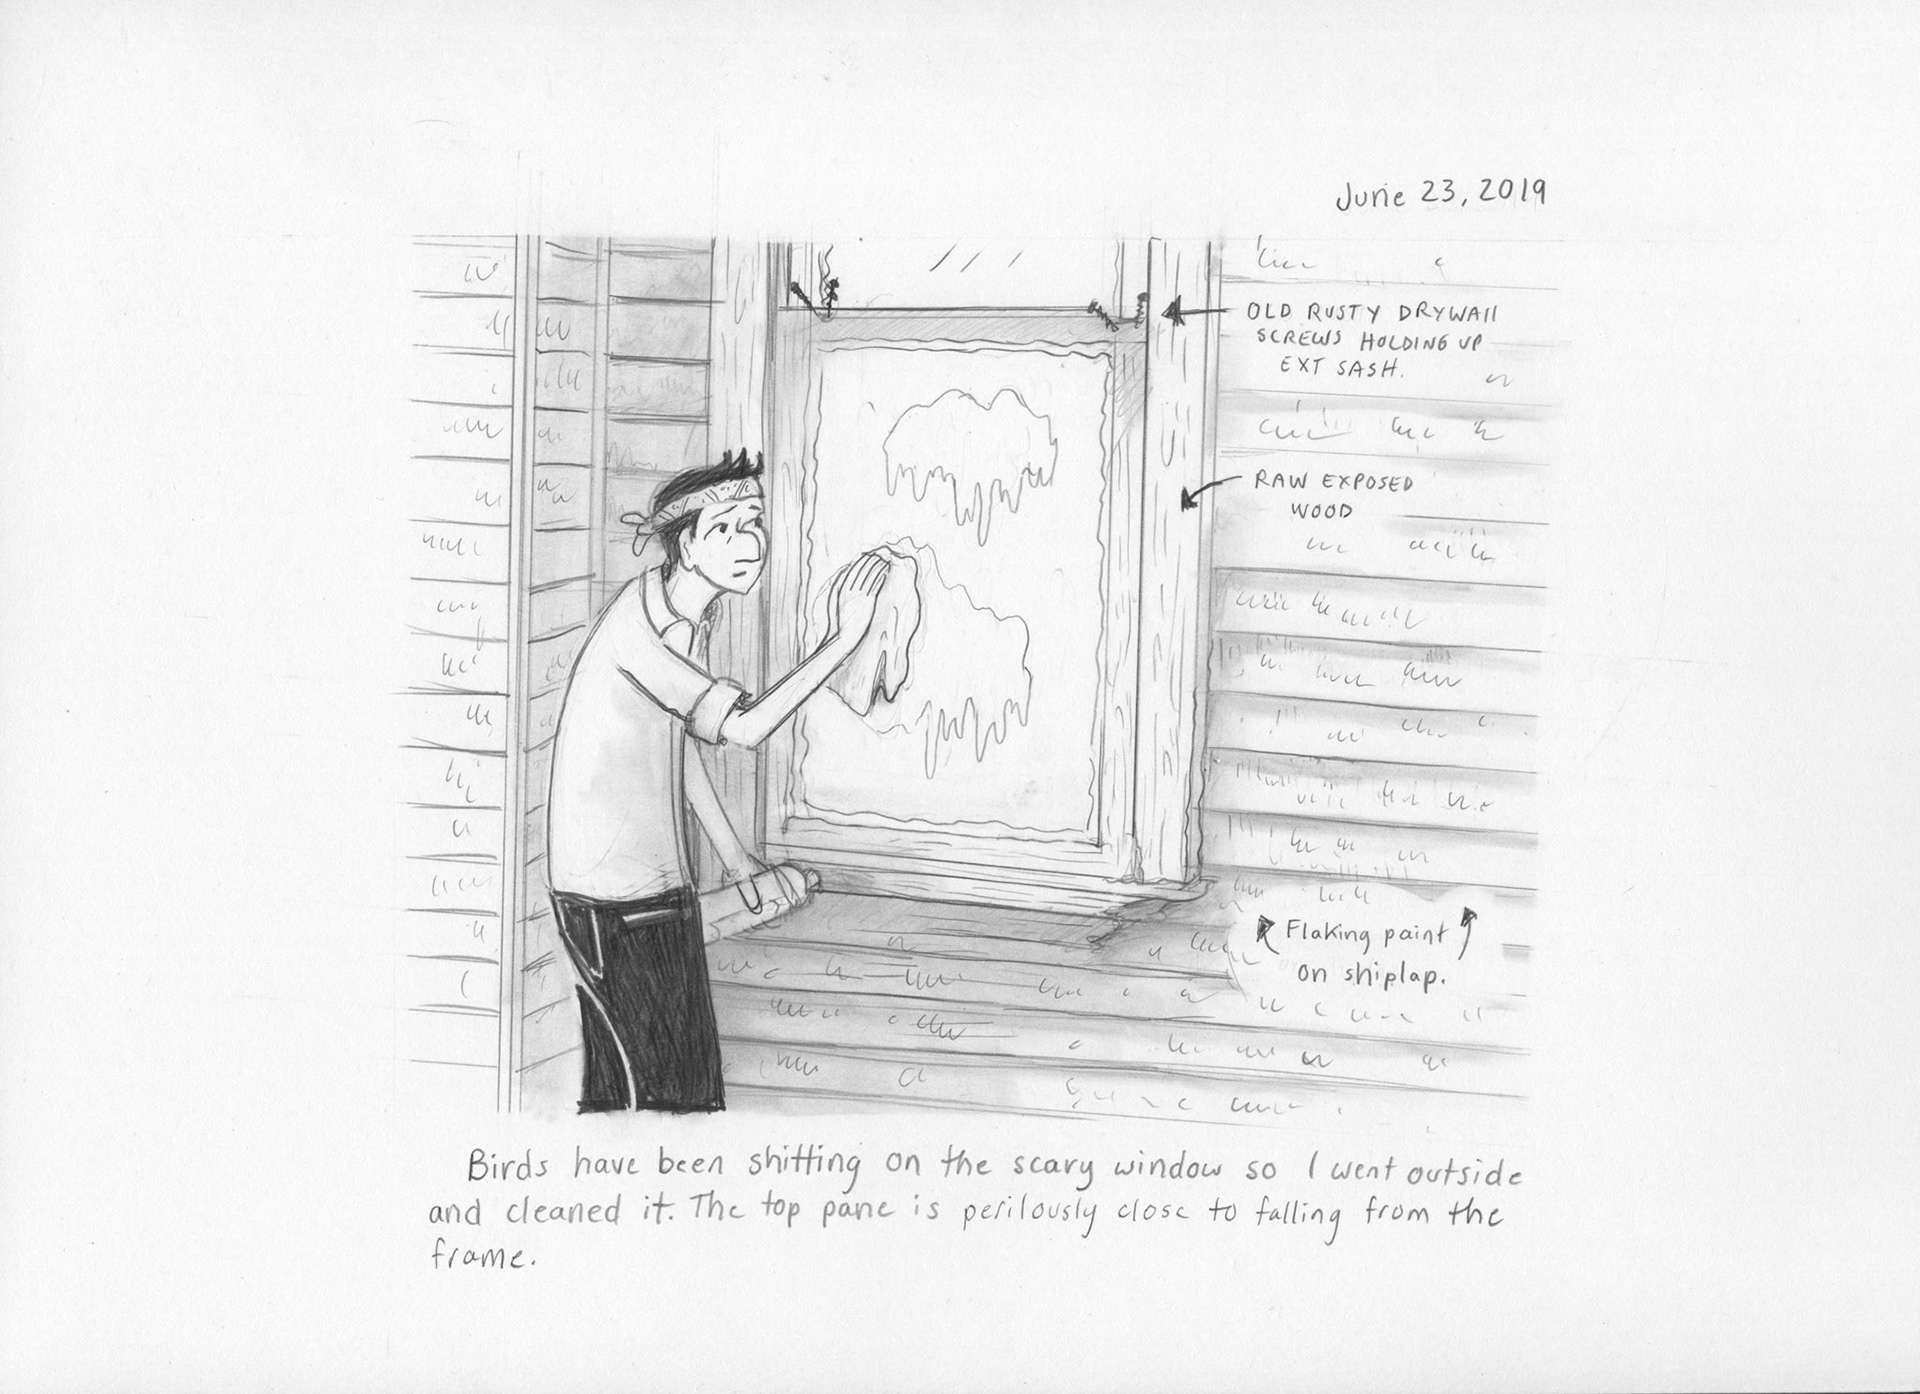 June 23, 2019
OLD RUSTY DRYWAll
SCREWS HOLDING UP
EXT SASH.
RAW EXPOSED
WOOD
Flaking paint
on shiplap.
Birds have been shitting on the scary window so I went outside
and cleaned it. The top pane is perilously close to falling from the
frame.